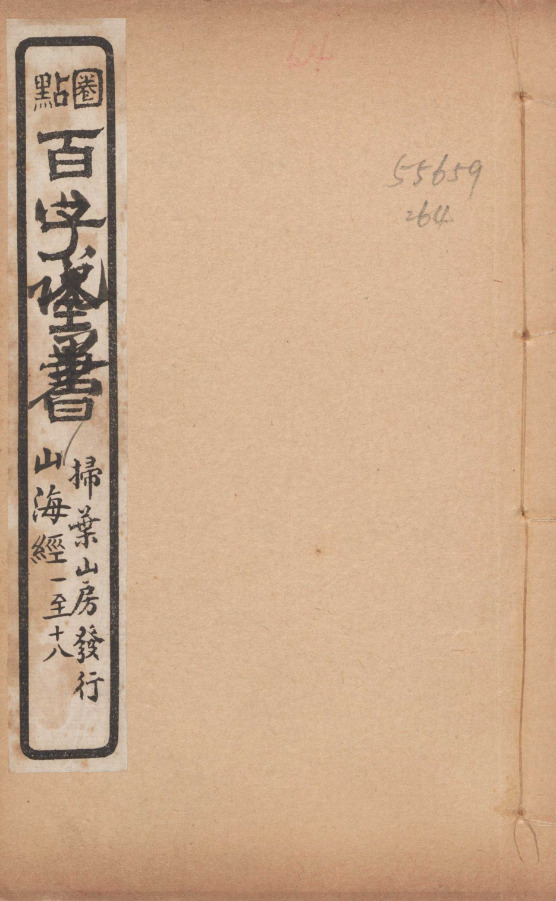 圈點
百子全書
掃葉山房發行
山海經一至十八
55659
264